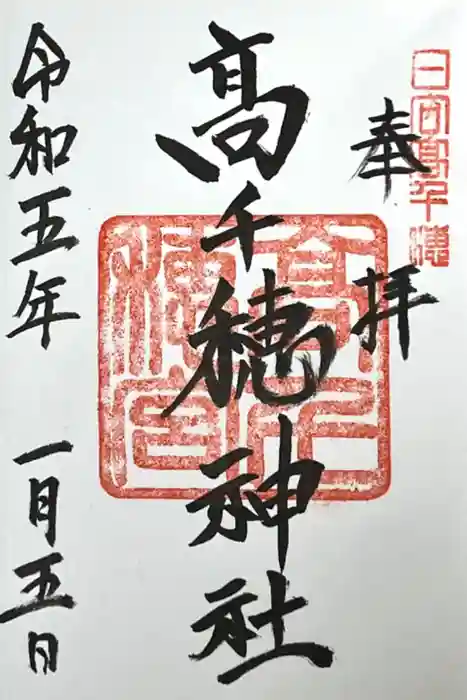 日向高千穂
奉拝
髙千穂神社
高千穂宮
令和五年 一月五日